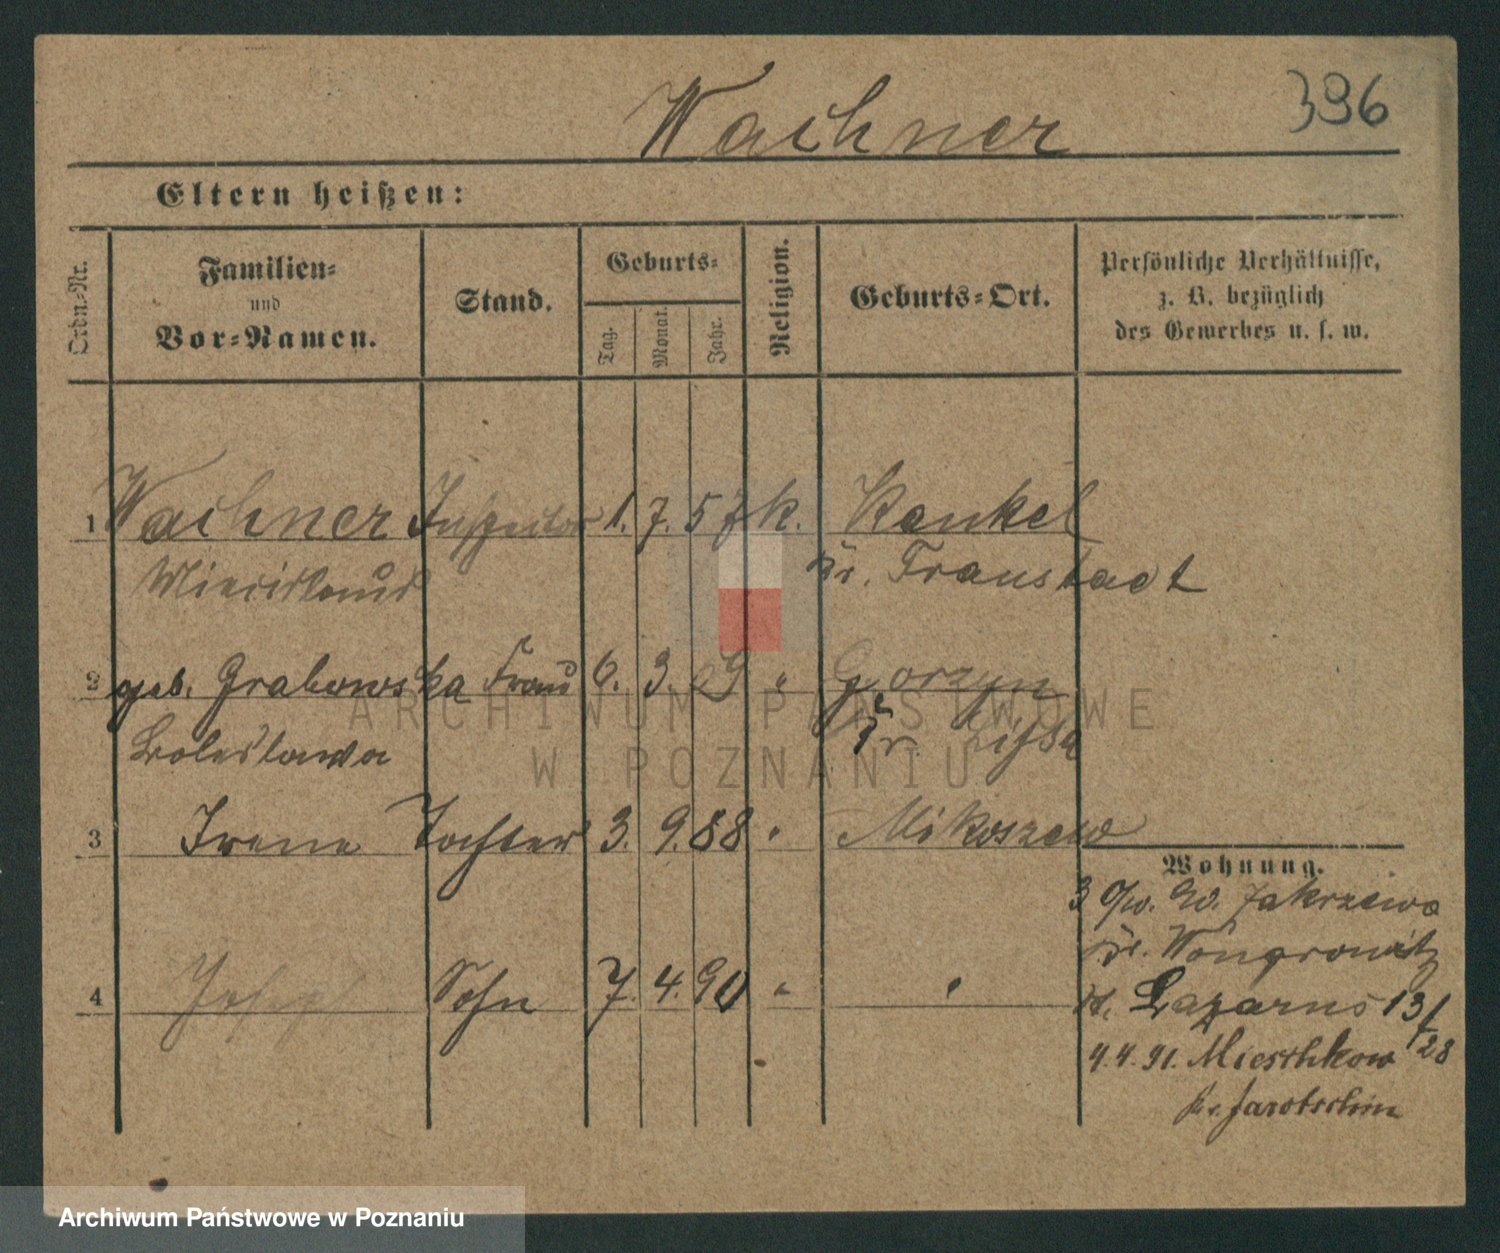 Wachner
396
Eltern heißen:
Ordn.=Nr.
Familien=
und
Vor=Namen.
Stand.
Geburts=
Tag.
Monat.
Jahr.
Religion.
Geburts=Ort.
Persönliche Verhältnisse,
z. B. bezüglich
des Gewerbes u. s. w.
1 Wachner Inspector 1. 7. 57 k. Kankel
Kr. Fraustadt
2 geb. Grabowska Frau 6. 3. 69 " Gorzyn
Boleslawa Kr. Lissa
3 Irene Tochter 3. 9. 88 " Mikoszewo
Wohnung.
3 Zakrzewo
Kr. Wongrowitz
4 Joseph Sohn 7. 4. 90 " "
St. Lazarus 13/28
4.4.91. Mieschkow
Kr. Jarotschin
ARCHIWUM PAŃSTWOWE
W POZNANIU
Archiwum Państwowe w Poznaniu